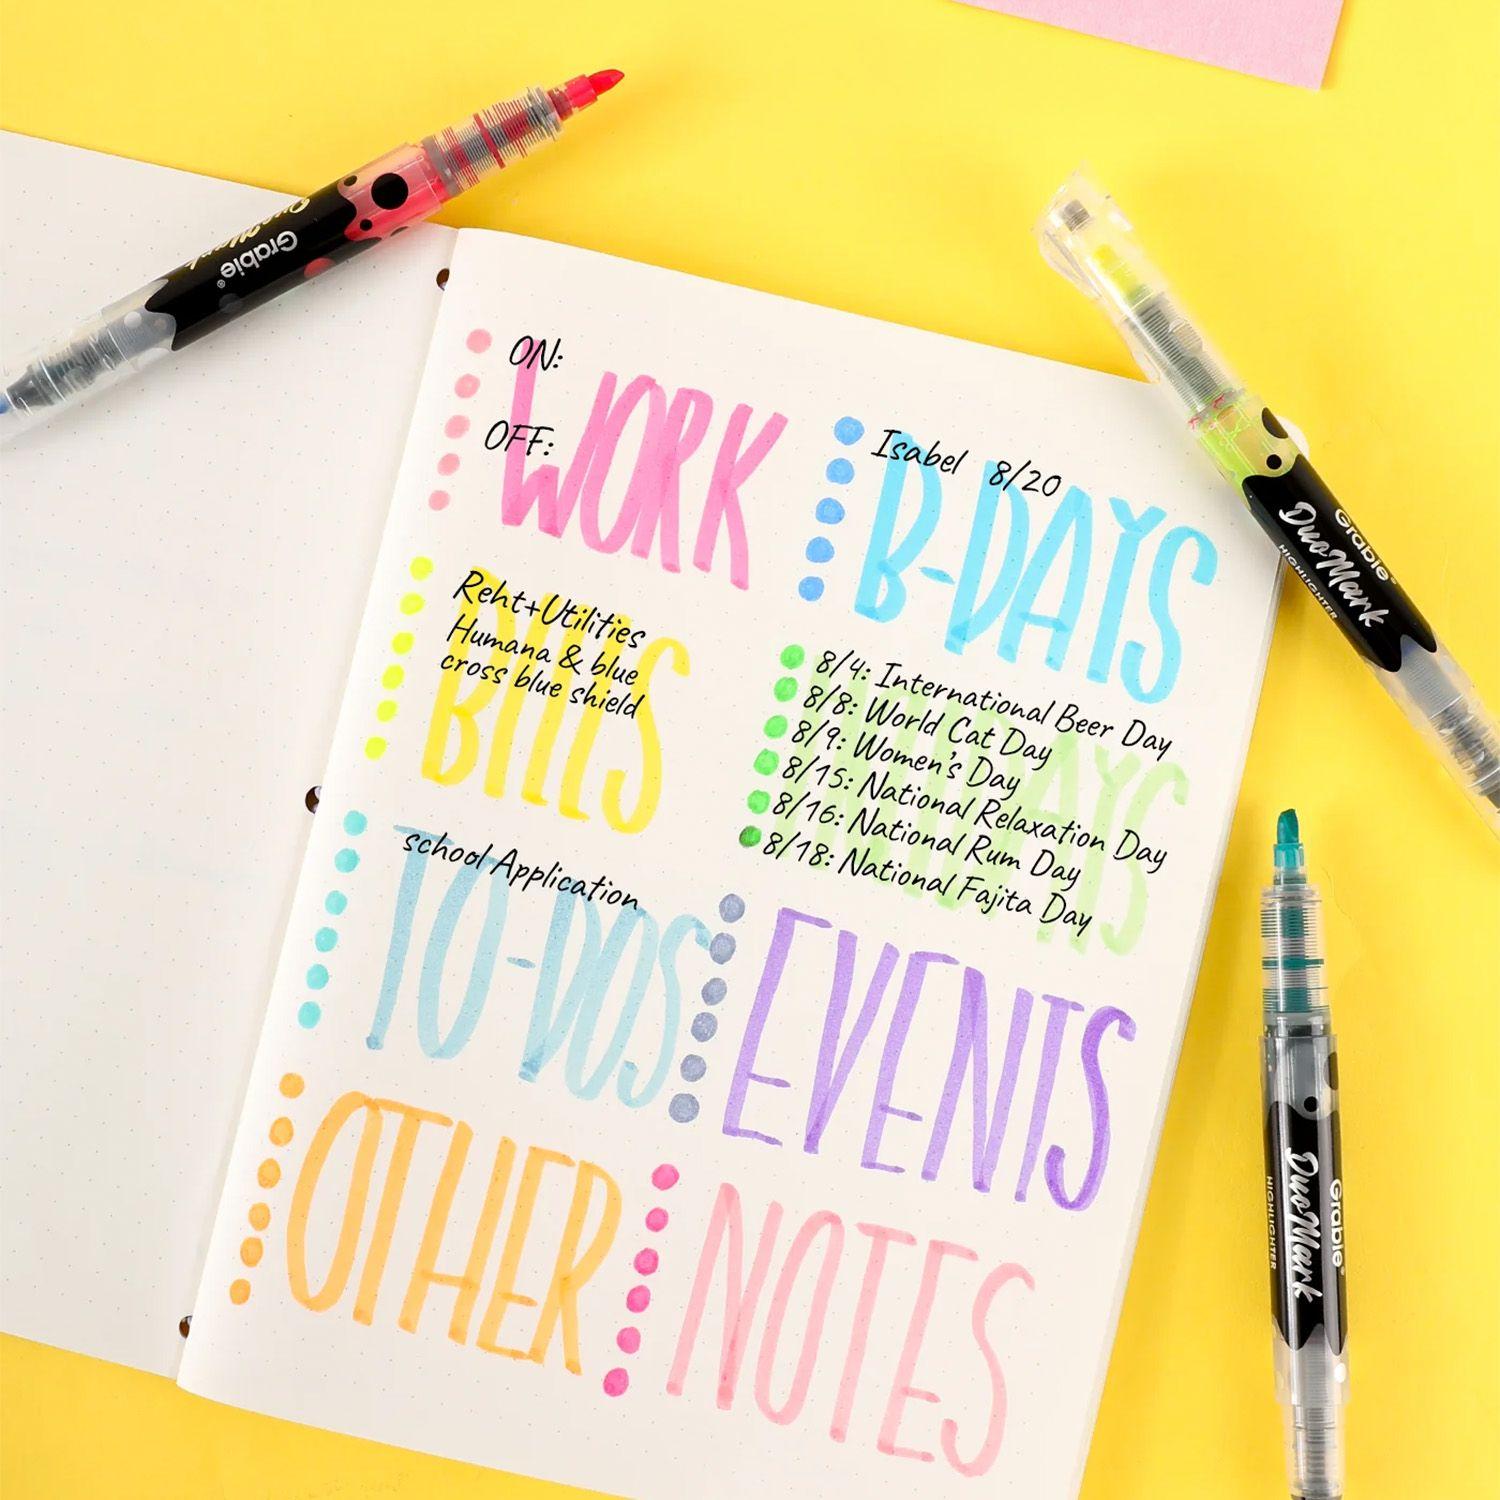 Grabie®
DuoMark
ON:
OFF:
WORK
Isabel 8/20
B-DAYS
Reht+Utilities
Humana & blue
cross blue shield
BILLS
8/4: International Beer Day
8/8: World Cat Day
8/9: Women's Day
8/15: National Relaxation Day
8/16: National Rum Day
8/18: National Fajita Day
HOLIDAYS
school Application
TO-DOS
EVENTS
OTHER
NOTES
Grabie®
DuoMark
HIGHLIGHTER
Grabie®
DuoMark
HIGHLIGHTER